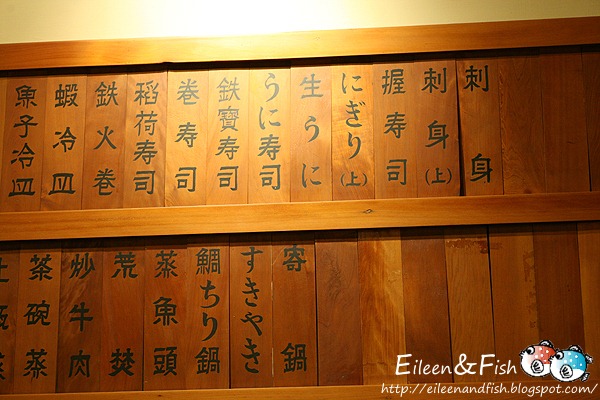 刺身
刺身(上)
握寿司
にぎり(上)
生うに
うに寿司
鉄寶寿司
巻寿司
稲荷寿司
鉄火巻
蝦冷皿
魚子冷皿
寄鍋
すきやき
鯛ちり鍋
蒸魚頭
荒焚
炒牛肉
茶碗蒸
Eileen&Fish
http://eileenandfish.blogspot.com/